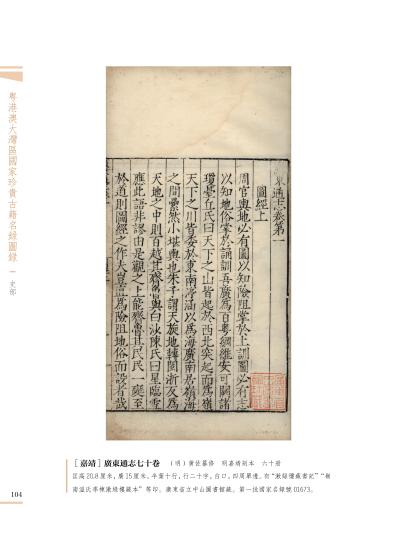 粤港澳大灣區國家珍貴古籍名録圖録 — 史部
東通志卷第一
圖經上
周官輿地必有圖以知險阻掌於土訓圖必有志
以知地俗掌於誦訓吾廣為百粵綱維安可闕諸
瓊臺丘氏曰天下之山皆起於西北突起而為嶺
天下之川皆委於東南渟涵以為海廣南居嶺海
之間纍然小堪輿也朱子謂天旋地轉閩浙反為
天地之中則百越其齊魯與白沙陳氏曰星臨雪
應此語非謬由是觀之上能齊魯其民民一變至
於道則圖經之作夫豈直為險阻地俗而設者哉
［嘉靖］廣東通志七十卷 （明）黄佐纂修 明嘉靖刻本 六十册
匡高20.8厘米，廣15厘米。半葉十行，行二十字，白口，四周單邊。有“漱緑樓藏書記”“嶺
南溫氏 漱緑樓藏本”等印。廣東省立中山圖書館藏。第一批國家名録號01673。
104